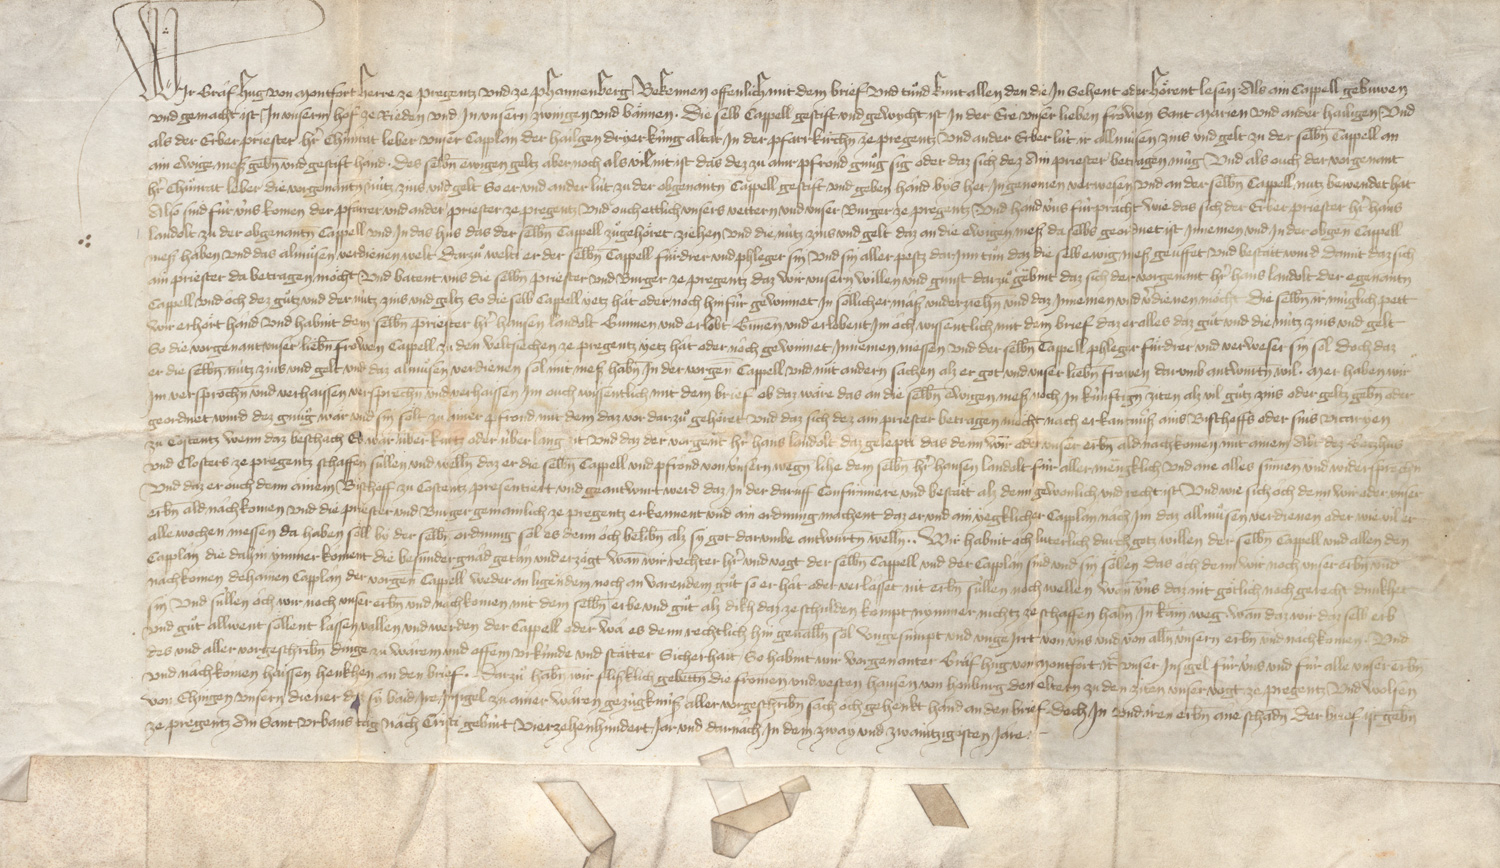 Wir Graf Hug von Montfort Herre ze pregentz vnd ze phannenberg Bekennen offenlich mit dem brief vnd tuͦnd kunt allen den die Jn Sehent oder Hoͤrent lesen Als ain Cappell gebuwen
vnd gemachot ist Jn vnserm hof ze Rieden vnd Jn vnsern zwingen vnd baͤnnen. Die selb Cappell gestift vnd gewyhet ist Jn der Ere vnser lieben frowen Sant Marien vnd ander hailigen Vnd
als der Erber priester hr̄ Chuͦnrat leber vnser Caplan der hailgen dryer kuͤng altar Jn der pfarrkirchn̄ ze pregentz vnd ander Erber luͤt ir allmuͦsen zins vnd gelt zu der selbn̄ Cappell an
ain ewige mess gebn̄ vnd gestift hand. Des selbn̄ ewigen geltz aber noch als vil nit ist das dez zu ainr pfrond gnuͦg sig oder daz sich dez ain priester betragen muͤg Vnd als ouch der vorgenant
hr̄ Chuͦnrat leber die vorgenantn̄ nuͤtz zins vnd gelt So er vnd ander luͤt zu der obgenantn̄ Cappell gestift vnd geben hand bys her Jngenomen verwesen vnd an der selbn̄ Cappell nutz bewendet hat
Also sind fuͤr vns komen der pfarrer vnd ander priester ze pregentz vnd ouch ettlich vnsers vettern vnd vnser Burger ze pregentz vnd hand vns fuͤrpracht wie das sich der Erber priester hr̄ hans
landolt zu der obgenantn̄ Cappell vnd Jn das hus das der selbn̄ Cappell zugehoͤret ziehen vnd die nuͤtz zins vnd gelt daz an die ewigen mess da selbs geordnet ist Jnnemen vnd Jn der obgen Cappell
mess haben vnd das almuͦsen verdienen welt. Darzuͦ welt er der selbn̄ Cappell fuͤrdrer vnd phleger sin vnd sin aller pestz dar Jnn tuͦn daz die selb ewig mess geuffet vnd bestaͤt wurd damit daz sich
ain priester da betragen moͤcht Vnd batent vns die selbn̄ priester vnd Burger ze pregentz daz wir vnsern willen vnd gunst darzuͦ gebint daz sich der vorgenant hr̄ hans landolt der egenantn̄
Cappell vnd och dez guͦtz vnd der nuͤtz zins vnd geltz So die selb Cappell yetz hat oder noch hinfuͤr gewinnet Jn soͤllicher mass vnderziehn vnd daz Jnnemen vnd v̓dienen moͤcht. Die selbn̄ ir muglich pett
wir erhoͤrt hand Vnd habint dem selbn̄ priester hr̄ hansen landolt Gunnen vnd erlobt Gunnen vnd erlobent Jm och wissentlich mit dem brief daz er alles daz guͦt vnd die nuͤtz zins vnd gelt
So die vorgenant vnser liebn̄ frowen Cappell zu den veltsiechen ze pregentz yetz hat oder noch gewinnet Jnnemen niessen vnd der selbn̄ Cappell phleger fuͤrdrer vnd verweser sin sol Doch daz
er die selbn̄ nuͤtz zins vnd gelt vnd daz almuͦsen verdienen sol mit mess habn̄ Jn der vorgen̄ Cappell vnd mit andern sachen alz er got vnd vnser liebn̄ frowen darumb antwurtn̄ wil. Aber haben wir
Jm versprochn̄ vnd verhaissen versprechn̄ vnd verhaissen Jm ouch wissentlich mit dem brief ob daz waͤre das an die selbn̄ ewigen mess noch Jn kuͤnftign̄ ziten alz vil guͦtz zins oder geltz gebn̄ oder
geordnet wurd dez gnuͦg war vnd sin solt zu ainer pfrond mit dem daz vor darzuͦ gehoͤret vnd daz sich dez ain priester betragen moͤcht nach erkantnuͤss ains Bischoffs oder sins vicaryen
zu Costentz wenn daz beschech Es waͤr uͤber kurtz oder uͤber lang zit vnd daz der vorgent hr̄ hans landolt daz gelepti das denn wir oder vnser erbn̄ ald nachkomen mit ainem Abt dez Gotzhus
vnd Closters ze pregentz schaffen suͤllen vnd welln̄ daz er die selbn̄ Cappell vnd pfrond von vnsern wegn̄ lihe dem selbn̄ hr̄ hansen landolt fuͤr aller menglich vnd ane alles sumen vnd widersprechn̄
Vnd daz er ouch denn ainem Bischoff zu Costentz presentiert vnd geantwurt werd daz Jn der daruff Confirmiere vnd bestaͤt alz denn gewonlich vnd recht ist Vnd wie sich och denn wir oder vnser
erbn̄ ald nachkomen vnd die priester vnd Burger gemainlich ze pregentz erkennent vnd ain ordnung machent daz er vnd ain yegklicher Capplan nach Jm daz allmuͦsen verdienen oder wie vil er
alle wochen messen da haben soͤll by der selbn̄ ordnung sol es denn och belibn̄ alz sy got darumbe antwurtn̄ welln̄.. Wir habint och luterlich durch gotz willen der selbn̄ Cappell vnd allen den
Capplan die dahin ymmer koment die besunder gnad getan vnd erzoͤgt Wan wir rechter hr̄ vnd vogt der selbn̄ Cappell vnd der Capplan sind vnd sin soͤllen das och denn wir noch vnser erbn̄ vnd
nachkomen dehainen Capplan der vorgen Cappell weder an ligendem noch an varendem guͦt so er hat oder verlasset nit erbn̄ suͤllen noch wellen wan vns daz nit goͤtlich noch gerecht dunkhet
sin Vnd suͤllen och wir noch vnser erbn̄ vnd nachkomen mit dem selbn̄ erbe vnd guͦt alz dikh daz ze schulden kompt nommer nichtz ze schaffen habn̄ Jn kain weg. wan daz wir daz selb erb
vnd guͦt allwent soͤllent lassen vallen vnd werden der Cappell oder wa es denn rechtlich hin gevalln̄ sol vngesumpt vnd vngeirrt von vns vnd von alln̄ vnsern erbn̄ vnd nachkomen. Vnd
des vnd aller vorgeschribn̄ dinge zu warem vnd offem vrkuͤnde vnd staͤtter Sicherhait So habint wir vorgenanter Graf hug von Montfort ꝛc vnser Jnsigel fuͤr vns vnd fuͤr alle vnser erbn̄
vnd nachkomen haissen henkhen an den brief. Darzuͦ habn̄ wir flissklich gebettn̄ die fromen vnd vesten hansen von honburg den eltern zu den ziten vnser vogt ze pregentz vnd wolfen
von Ehingen vnsern diener daz sy baid ire Jnsigel zu ainer waren gezuͤgknuͤss aller vorgeschribn̄ sach och gehenkt hand an den brief. Doch Jn vnd iren erbn̄ ane schadn̄. Der brief ist gebn̄
ze pregentz An Sant vrbans tag Nach Cristi gebuͤrt Vierzehenhundert Jar vnd darnach Jn dem zway vnd zwaintzigosten Jare.